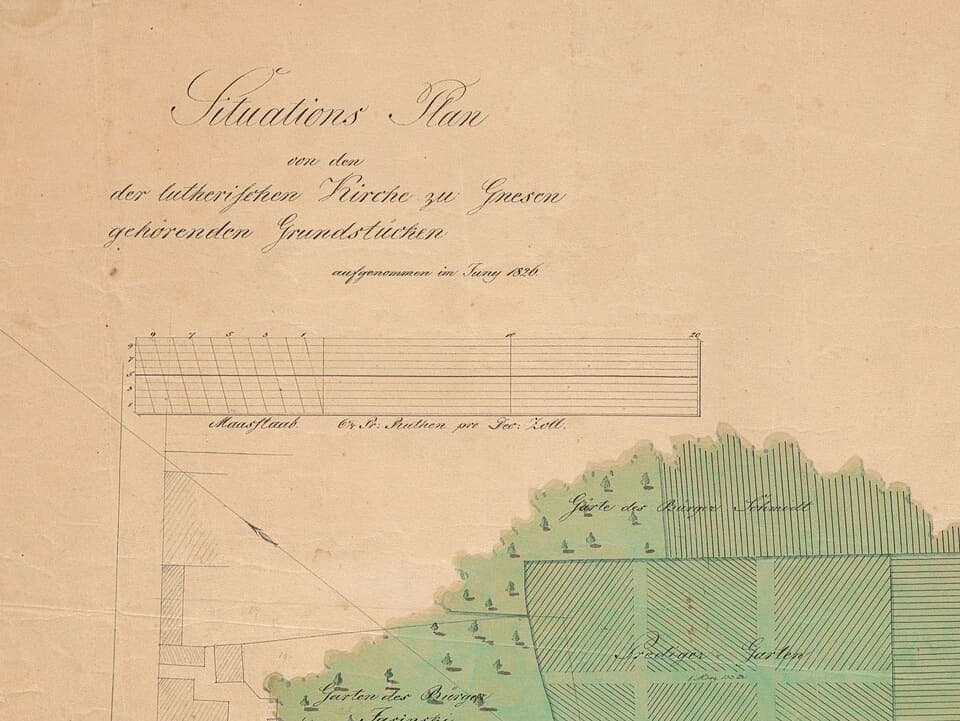 Situations Plan
von den
der lutherischen Kirche zu Gnesen
gehörenden Grundstücken
aufgenommen im Juny 1826.
9 7 5 3 1 10 20
9
7
5
3
1
Maasstaab. Pr: Ruthen pro Dec: Zoll.
Gärte des Bürger Schmidt
Prediger-Garten
1 Mrg
Garten des Bürger
Jasinski